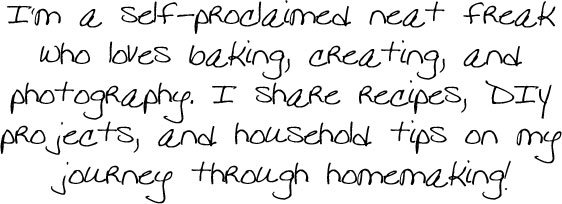 I'm a self-proclaimed neat freak
who loves baking, creating, and
photography. I share recipes, DIY
projects, and household tips on my
journey through homemaking!